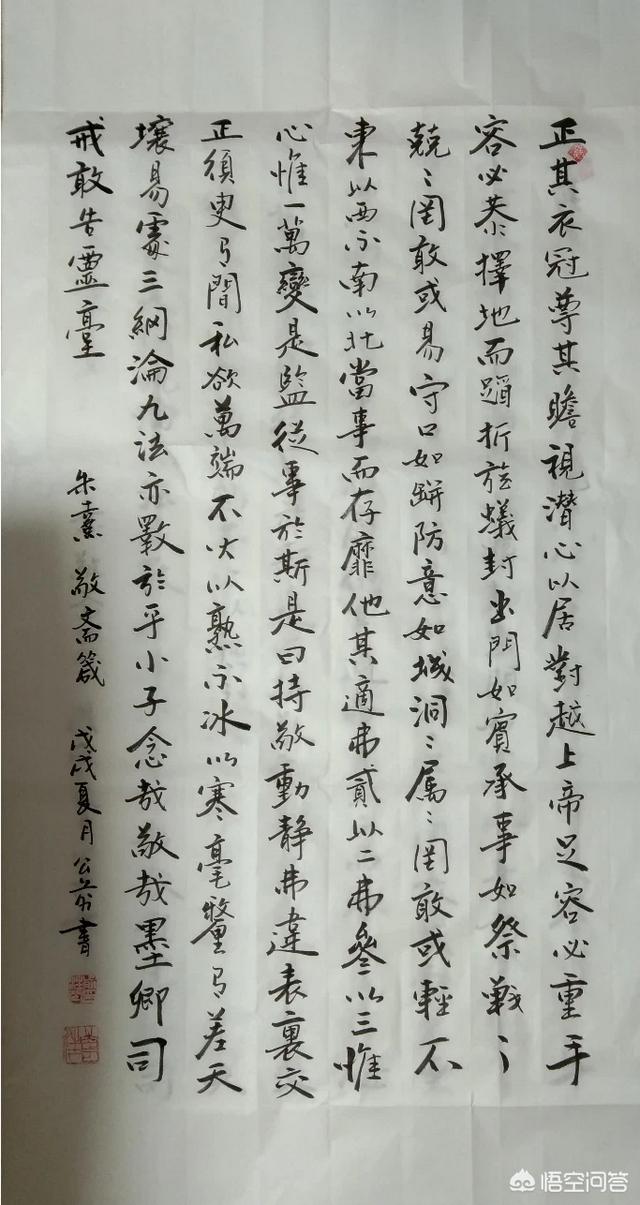 正其衣冠尊其瞻視潛心以居對越上帝足容必重手
容必恭擇地而蹈折旋蟻封出門如賓承事如祭戰〻
兢〻罔敢或易守口如缾防意如城洞〻属〻罔敢或輕不
東以西不南以北當事而存靡他其適弗貳以二弗參以三惟
心惟一萬變是監從事於斯是曰持敬動靜弗違表裏交
正須臾有間私欲萬端不火以熱不冰以寒毫釐有差天
壤易處三綱淪九法亦斁於乎小子念哉敬哉墨卿司
戒敢告靈臺
朱熹 敬斋箴 戊戌夏月 公 書
悟空问答